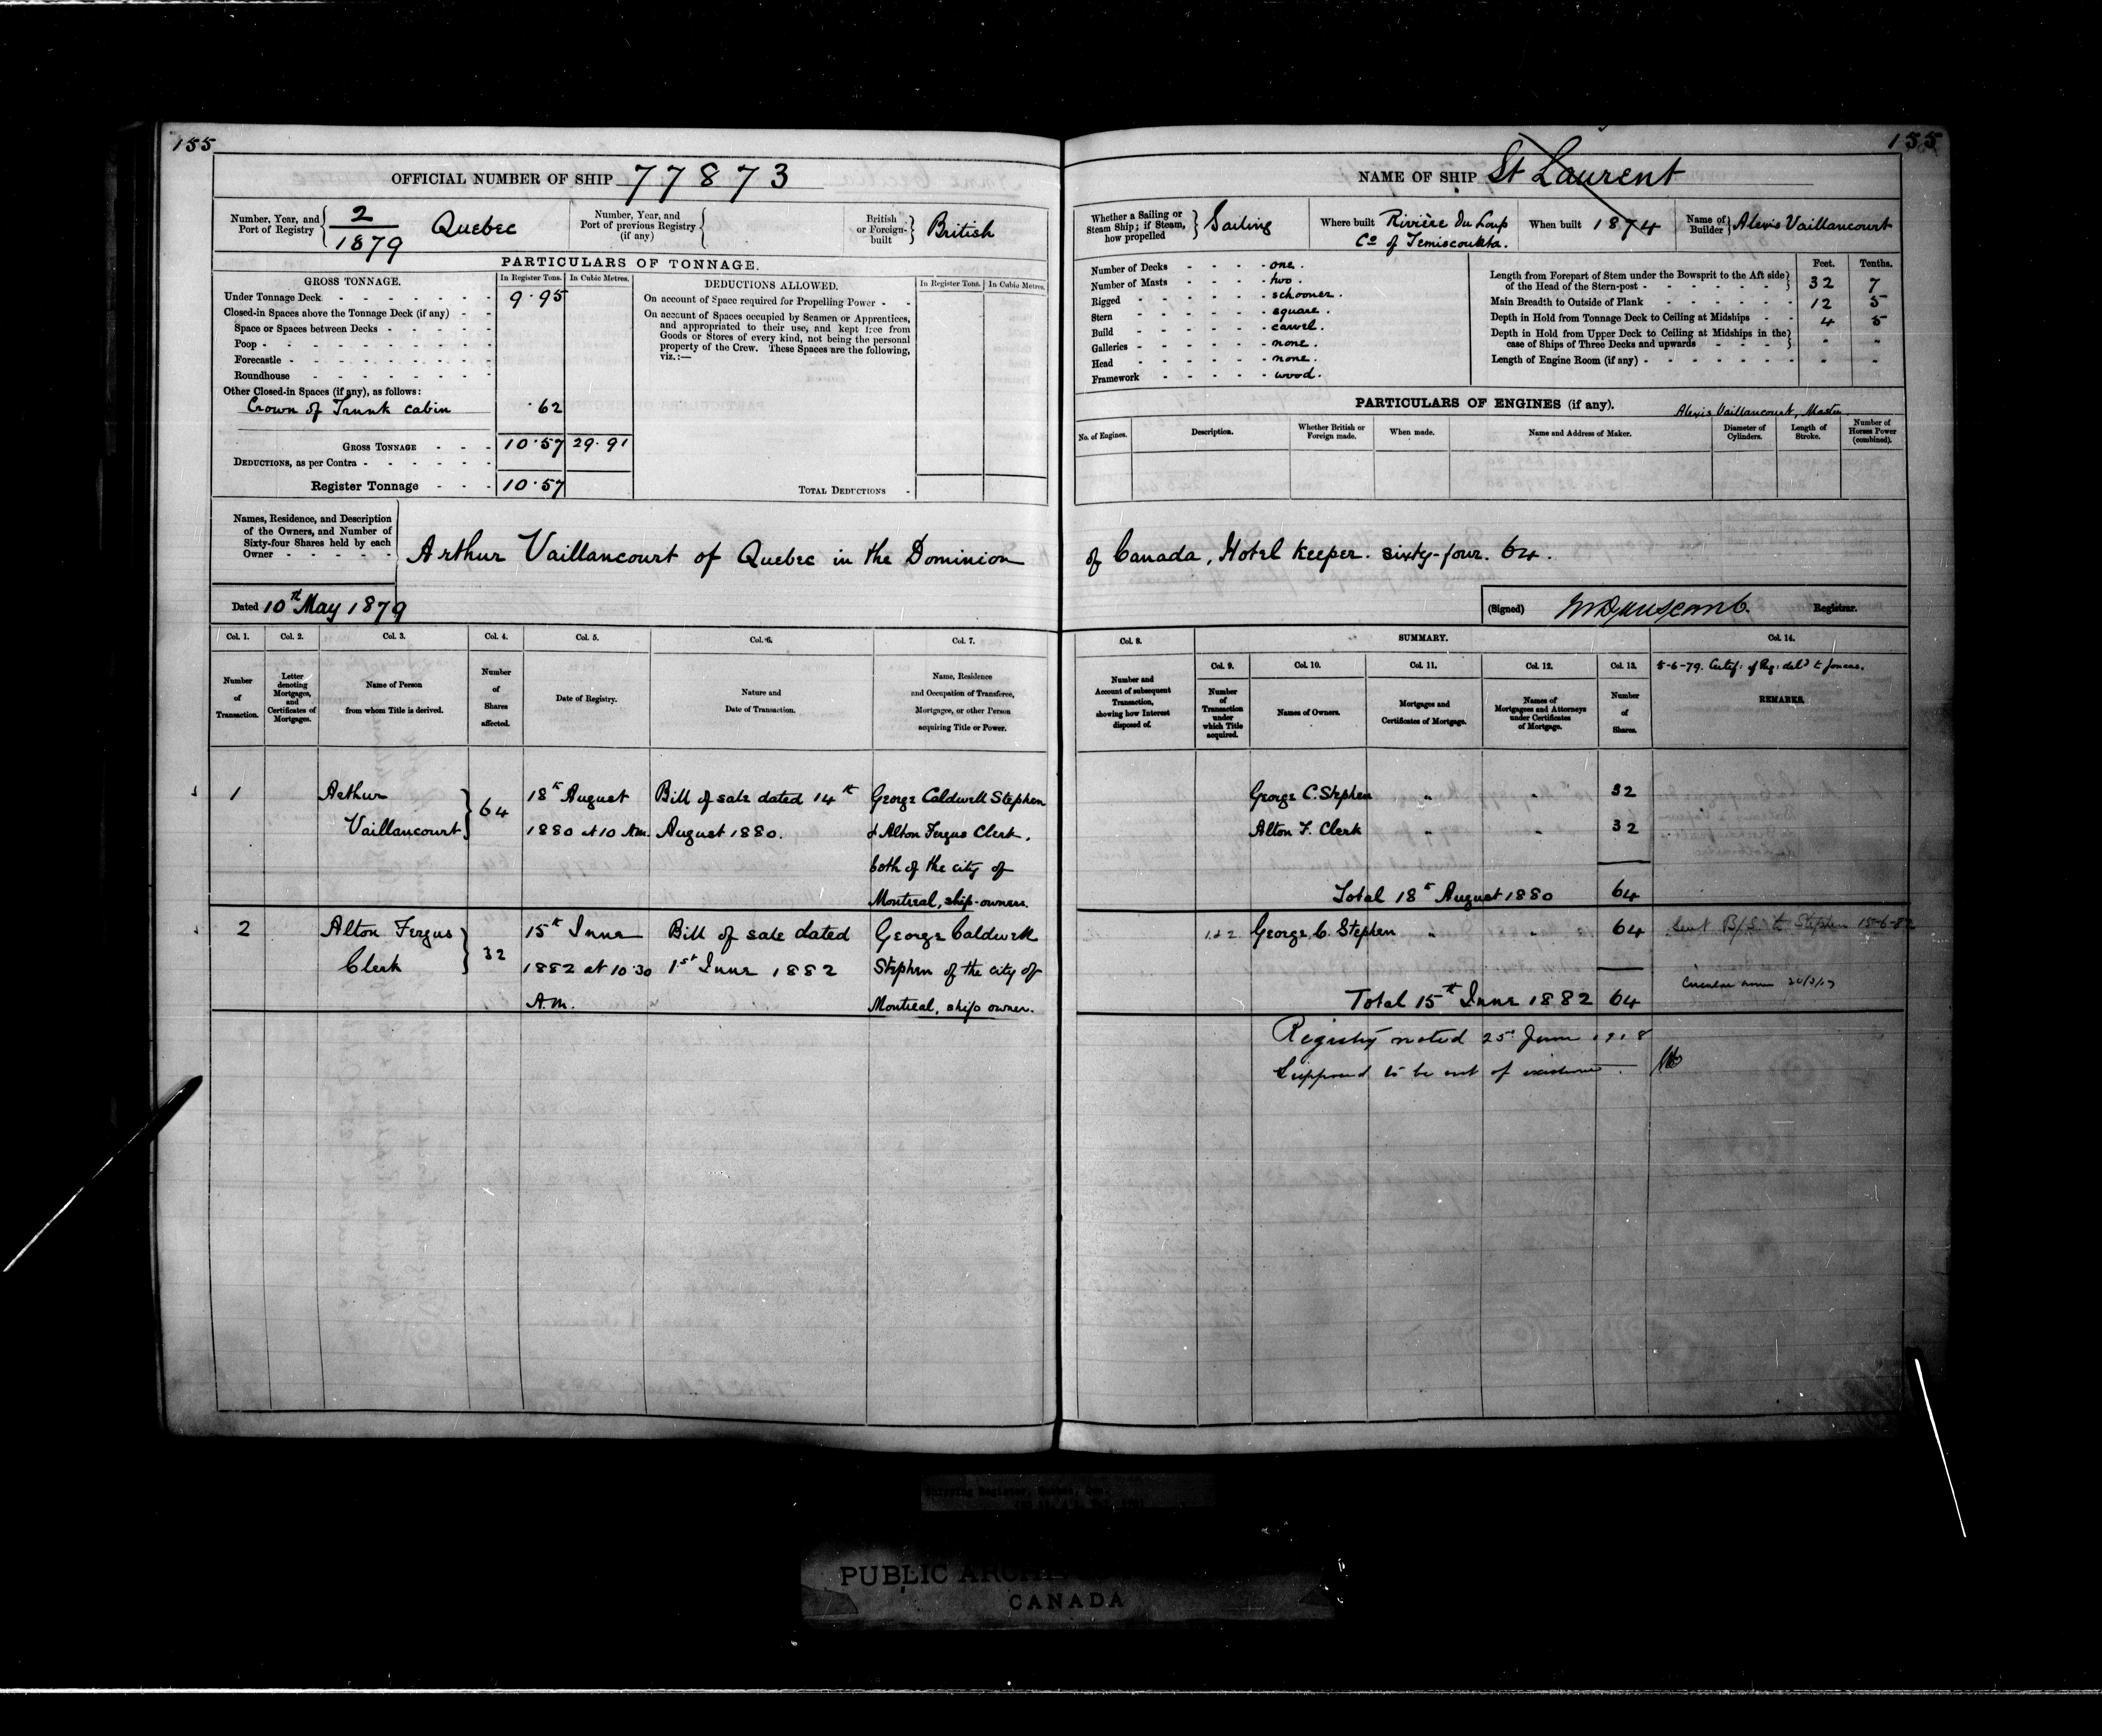 155
OFFICIAL NUMBER OF SHIP 77873
Number, Year, and Port of Registry 2/1879 Quebec
Number, Year, and Port of previous Registry (if any)
British or Foreign-built British
PARTICULARS OF TONNAGE.
GROSS TONNAGE. In Register Tons. In Cubic Metres.
Under Tonnage Deck 9.95
Closed-in Spaces above the Tonnage Deck (if any)
Space or Spaces between Decks
Poop
Forecastle
Roundhouse
Other Closed-in Spaces (if any), as follows:
Crown of Trunk cabin .62
GROSS TONNAGE 10.57 29.91
DEDUCTIONS, as per Contra
Register Tonnage 10.57
DEDUCTIONS ALLOWED. In Register Tons. In Cubic Metres.
On account of Space required for Propelling Power
On account of Spaces occupied by Seamen or Apprentices,
and appropriated to their use, and kept free from
Goods or Stores of every kind, not being the personal
property of the Crew. These Spaces are the following,
viz.:—
TOTAL DEDUCTIONS
Names, Residence, and Description
of the Owners, and Number of
Sixty-four Shares held by each
Owner
Arthur Vaillancourt of Quebec in the Dominion
Dated 10th May 1879
Col. 1. Col. 2. Col. 3. Col. 4. Col. 5. Col. 6. Col. 7.
Number of Transaction.
Letter denoting Mortgages, and Certificates of Mortgages.
Name of Person from whom Title is derived.
Number of Shares affected.
Date of Registry.
Nature and Date of Transaction.
Name, Residence and Occupation of Transferee, Mortgagee, or other Person acquiring Title or Power.
1 Arthur 64 18th August Bill of sale dated 14th George Caldwell Stephen
Vaillancourt 1880 at 10 A.m. August 1880. & Alton Fergus Clerk,
both of the city of
Montreal, ship-owners.
2 Alton Fergus 32 15th June Bill of sale dated George Caldwell
Clerk 1882 at 10.30 1st June 1882 Stephen of the city of
A.m. Montreal, ship owner.
155
NAME OF SHIP St Laurent
Whether a Sailing or Steam Ship; if Steam, how propelled Sailing
Where built Rivière du Loup
Co of Temiscouata.
When built 1874
Name of Builder Alexis Vaillancourt
Number of Decks one.
Number of Masts two.
Rigged schooner.
Stern square.
Build carvel.
Galleries none.
Head none.
Framework wood.
Feet. Tenths.
Length from Forepart of Stem under the Bowsprit to the Aft side
of the Head of the Stern-post 32 7
Main Breadth to Outside of Plank 12 5
Depth in Hold from Tonnage Deck to Ceiling at Midships 4 5
Depth in Hold from Upper Deck to Ceiling at Midships in the
case of Ships of Three Decks and upwards " "
Length of Engine Room (if any) " "
PARTICULARS OF ENGINES (if any). Alexis Vaillancourt, Master
No. of Engines.
Description.
Whether British or Foreign made.
When made.
Name and Address of Maker.
Diameter of Cylinders.
Length of Stroke.
Number of Horses Power (combined).
of Canada, Hotel Keeper. sixty-four. 64.
(Signed) Registrar.
Col. 8. SUMMARY. Col. 14.
Col. 9. Col. 10. Col. 11. Col. 12. Col. 13.
5-6-79. Certif: of Reg: deld to
Number and Account of subsequent Transaction, showing how Interest disposed of.
Number of Transaction under which Title acquired.
Names of Owners.
Mortgages and Certificates of Mortgage.
Names of Mortgagees and Attorneys under Certificates of Mortgage.
Number of Shares.
REMARKS.
George C. Stephen " " 32
Alton F. Clerk " " 32
Total 18th August 1880 64
1 & 2 George C. Stephen " " 64 Sent B/S. to Stephen 15-6-82
Circular
Total 15th June 1882 64
Registry noted 25th June 1918
Supposed to be out of existence.
PUBLIC
CANADA